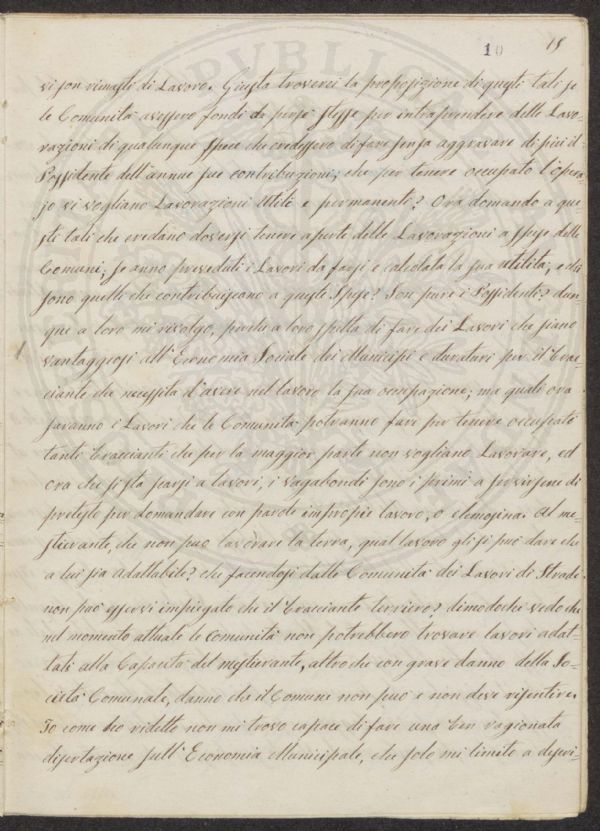 10 15
vi son rimasti di Lavoro. Giusta troverei la proposizione di questi tali se
le Comunità avessero fondi da perse stesse per intraprendere delle Lavo-
razioni di qualunque specie che credessero di fare senza aggravare di più il
Possidente dell'annue sue contribuzioni; che per tenere occupato l'opera-
jo vi vogliano Lavorazioni Utili e permanenti? Ora domando a que-
sti tali che credano doversi tenere aperte delle Lavorazioni a spese delle
Comuni, se anno preveduti i Lavori da farsi e calcolata la sua utilità, e chi
sono quelli che contribuiscano a queste Spese? Son pure i Possidenti? dun-
que a loro mi rivolgo, perchè a loro spetta di fare dei Lavori che siano
vantaggiosi all'Economia Sociale dei Municipi e duraturi per il brac-
ciante che necessita d'avere nel lavoro la sua occupazione; ma quali ora
saranno i Lavori che le Comunità potranno fare per tenere occupato
tanti braccianti che per la maggior parte non vogliano Lavorare, ed
ora che si sta scarsi a lavori, i vagabondi sono i primi a servirsene di
pretesto per domandare con parole improprie lavoro, o elemosina. Al me-
stierante, che non può lavorare la terra, qual lavoro gli si può dare che
a lui sia adattabile? che facendosi dalle Comunità dei Lavori di Strade
non può esservi impiegato che il bracciante terriero? dimodochè vedo che
nel momento attuale le Comunità non potrebbero trovare lavori adat-
tati alla Capacità del mestierante, altro che con grave danno della So-
cietà Comunale, danno che il Comune non può e non deve risentire.
Io come ho ridetto non mi trovo capace di fare una ben ragionata
disertazione sull'Economia Municipale, che solo mi limito a descri-